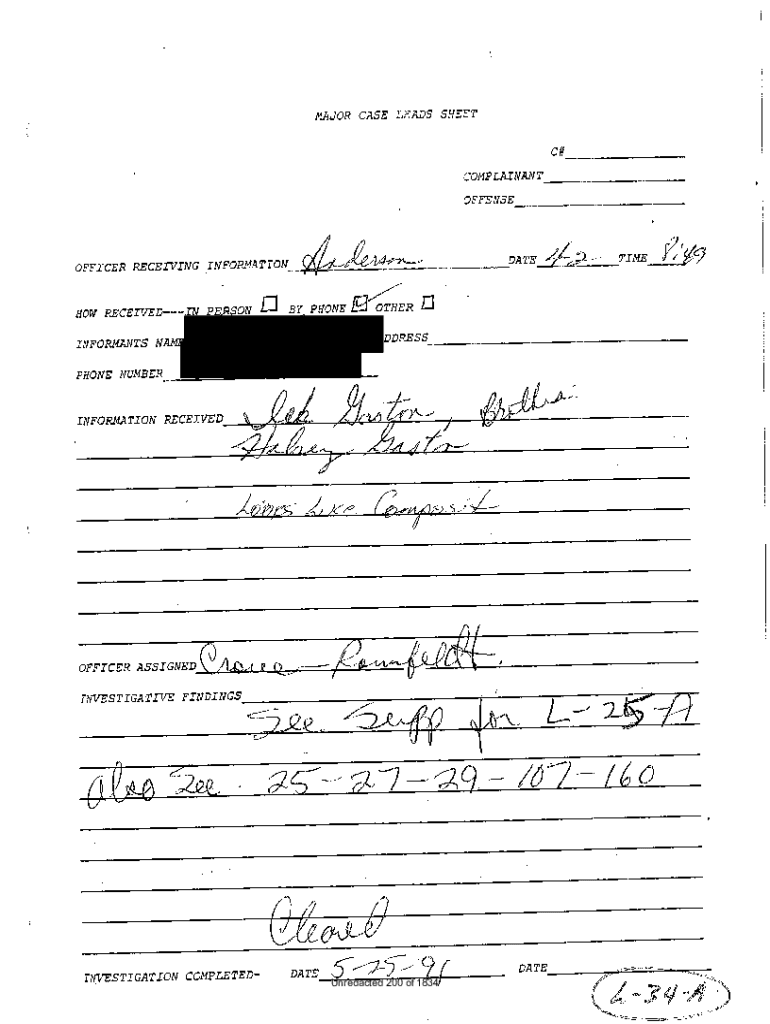 MAJOR CASE LEADS SHEET
C#
COMPLAINANT
OFFENSE
OFFICER RECEIVING INFORMATION Anderson DATE 4-2 TIME 8:49
HOW RECEIVED---IN PERSON BY PHONE OTHER
INFORMANTS NAME DDRESS
PHONE NUMBER
INFORMATION RECEIVED Gaston, Brother:
Halsey Gaston
Looks Like Composit
OFFICER ASSIGNED
INVESTIGATIVE FINDINGS
See Supp for L-25-A
Also See 25-27-29-107-160
Cleared
INVESTIGATION COMPLETED- DATE 5-25-91 DATE
Unredacted 200 of 1834
L-34-A